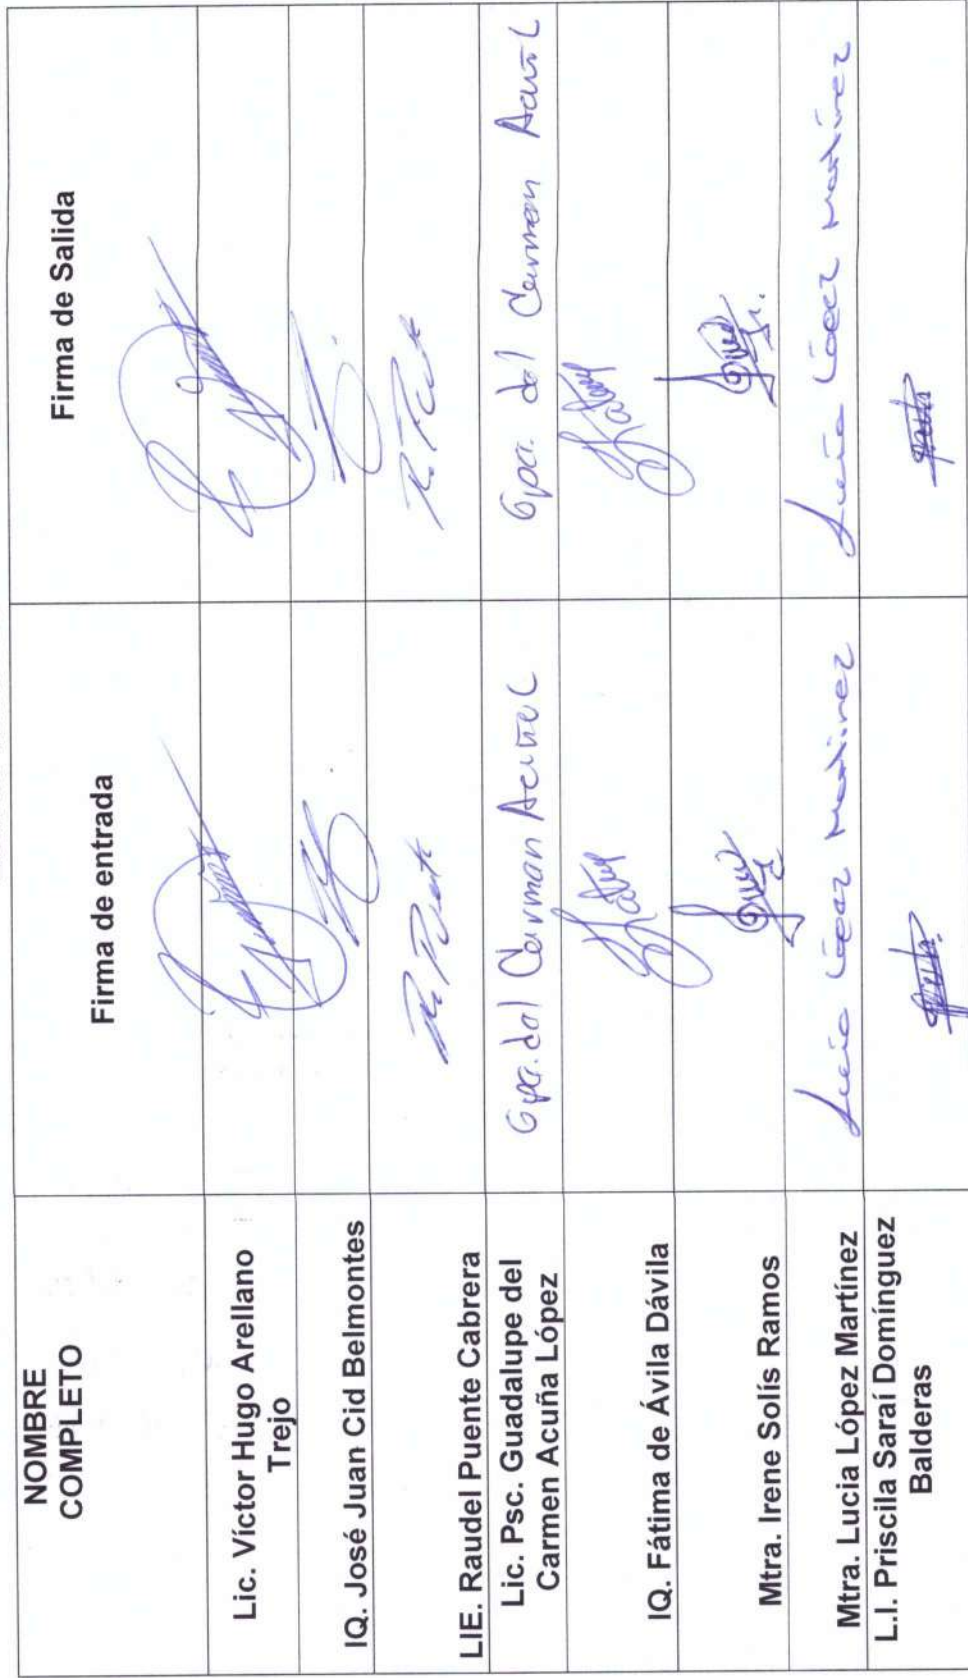 NOMBRE
COMPLETO
Firma de entrada
Firma de Salida
Lic. Víctor Hugo Arellano
Trejo
IQ. José Juan Cid Belmontes
LIE. Raudel Puente Cabrera
R. Puente
Lic. Psc. Guadalupe del
Carmen Acuña López
Gpa. del Carmen Acuña L
Gpa. del Carmen Acuña L
IQ. Fátima de Ávila Dávila
Mtra. Irene Solís Ramos
Mtra. Lucia López Martínez
Lucía López Martínez
Lucía López Martínez
L.I. Priscila Saraí Domínguez
Balderas